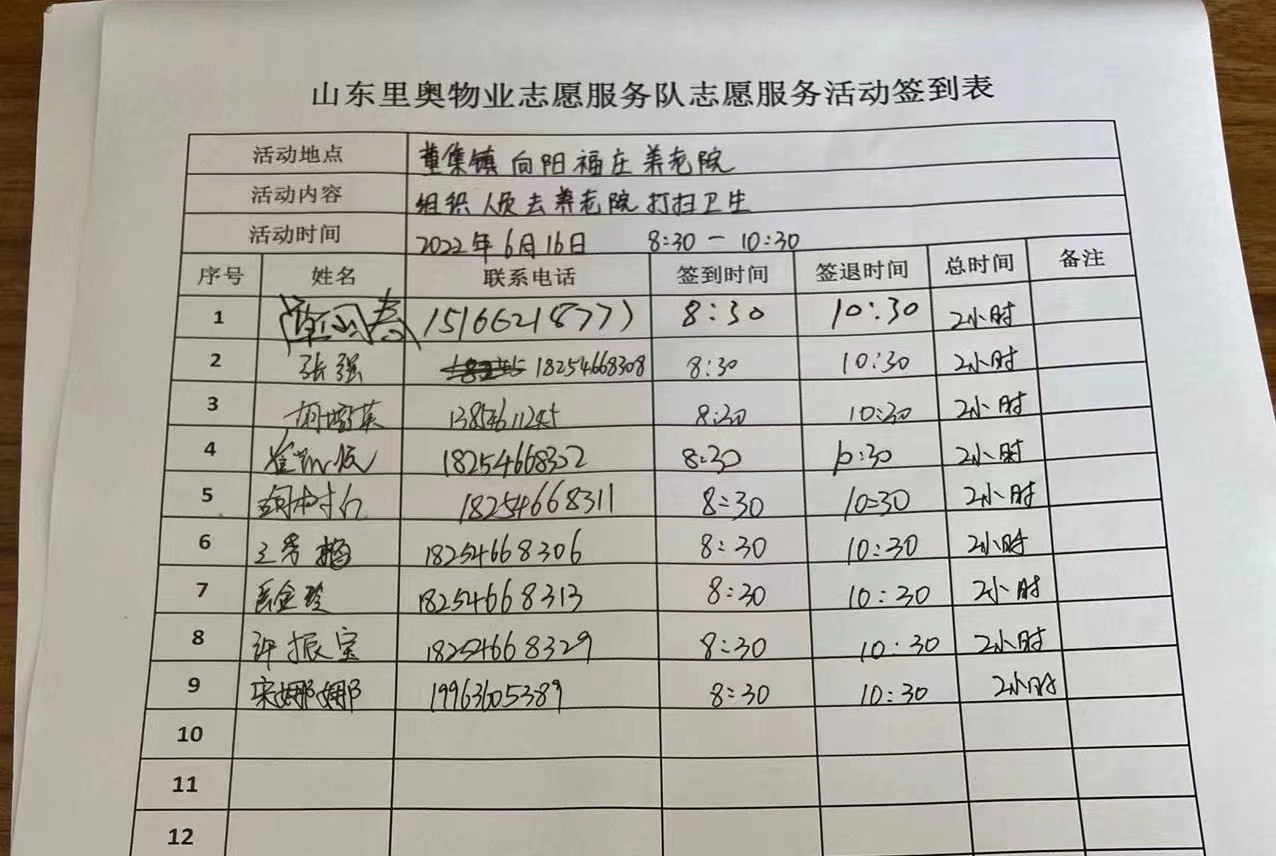 山东里奥物业志愿服务队志愿服务活动签到表
活动地点 董集镇向阳福庄养老院
活动内容 组织人员去养老院打扫卫生
活动时间 2022年6月16日 8:30-10:30
序号 姓名 联系电话 签到时间 签退时间 总时间 备注
1 15166218777 8:30 10:30 2小时
2 张强 18254668308 8:30 10:30 2小时
3 8:30 10:30 2小时
4 18254668322 8:30 10:30 2小时
5 18254668311 8:30 10:30 2小时
6 18254668306 8:30 10:30 2小时
7 18254668313 8:30 10:30 2小时
8 许振宝 18254668329 8:30 10:30 2小时
9 宋娜娜 19963605389 8:30 10:30 2小时
10
11
12